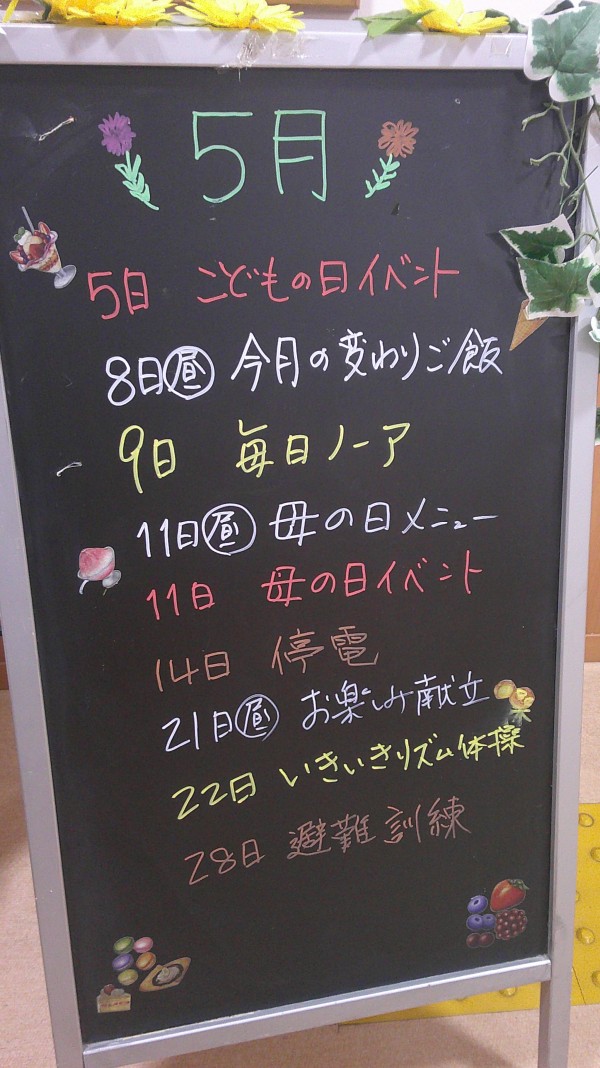 5月
5日 こどもの日イベント
8日昼 今月の変わりご飯
9日 毎日ノーア
11日昼 母の日メニュー
11日 母の日イベント
14日 停電
21日昼 お楽しみ献立
22日 いきいきリズム体操
28日 避難訓練